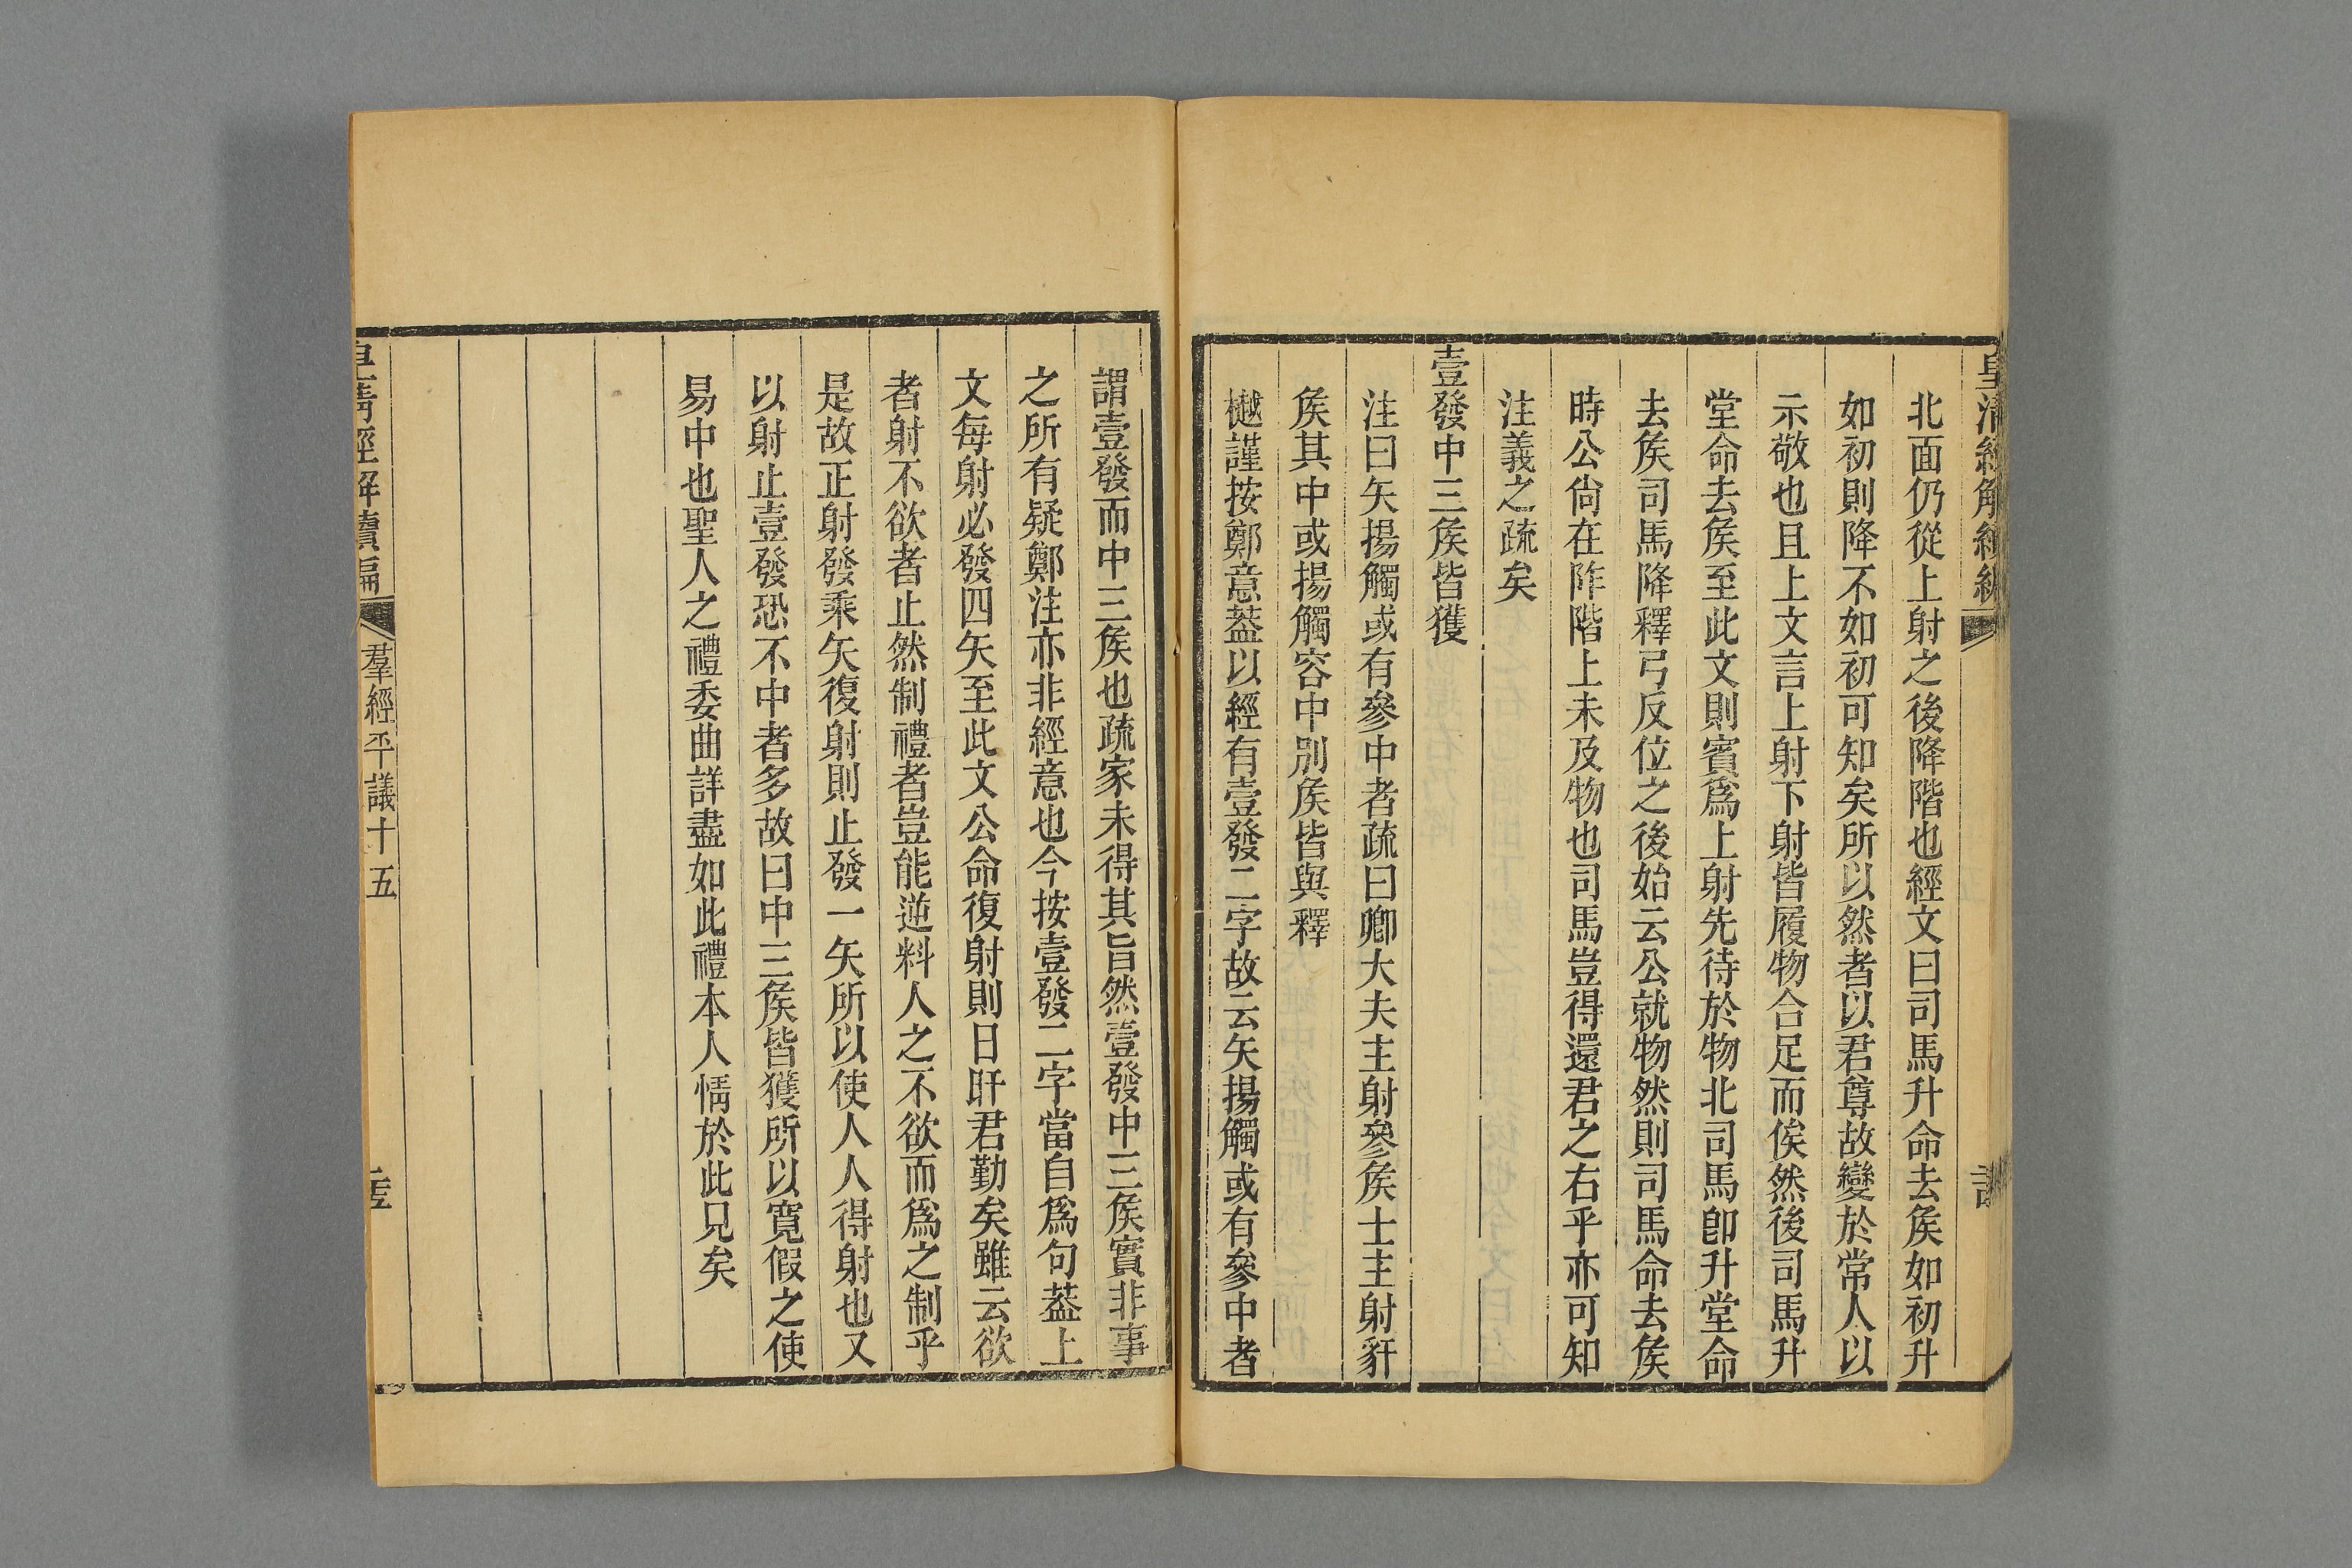 皇清經解續編
北面仍從上射之後降階也經文曰司馬升命去矦如初升
如初則降不如初可知矣所以然者以君尊故變於常人以
示敬也且上文言上射下射皆履物合足而俟然後司馬升
堂命去矦至此文則賓爲上射先待於物北司馬卽升堂命
去矦司馬降釋弓反位之後始云公就物然則司馬命去矦
時公尙在阼階上未及物也司馬豈得還君之右乎亦可知
注義之疏矣
壹發中三矦皆獲
注曰矢揚觸或有參中者疏曰卿大夫主射參矦士主射豻
矦其中或揚觸容中別矦皆與釋
樾謹按鄭意葢以經有壹發二字故云矢揚觸或有參中者
謂壹發而中三矦也疏家未得其旨然壹發中三矦實非事
之所有疑鄭注亦非經意也今按壹發二字當自爲句葢上
文每射必發四矢至此文公命復射則日旰君勤矣雖云欲
者射不欲者止然制禮者豈能逆料人之不欲而爲之制乎
是故正射發乘矢復射則止發一矢所以使人人得射也又
以射止壹發恐不中者多故曰中三矦皆獲所以寬假之使
易中也聖人之禮委曲詳盡如此禮本人情於此見矣
皇清經解續編 羣經平議十五